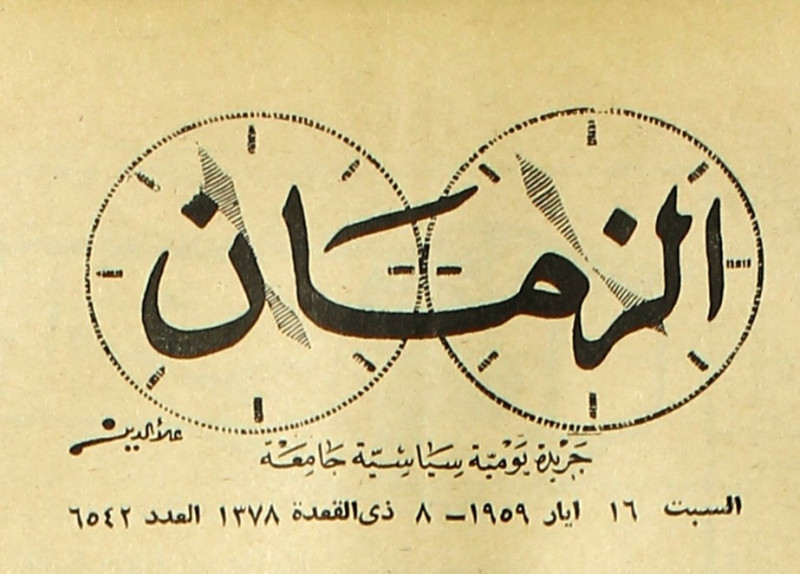 الزمان
علاء الدين
جَرِيدة يَوْميّة سِيَاسِيّة جَامِعَة
السبت ١٦ ايار ١٩٥٩ – ٨ ذى القعدة ١٣٧٨ العدد ٦٥٤٢